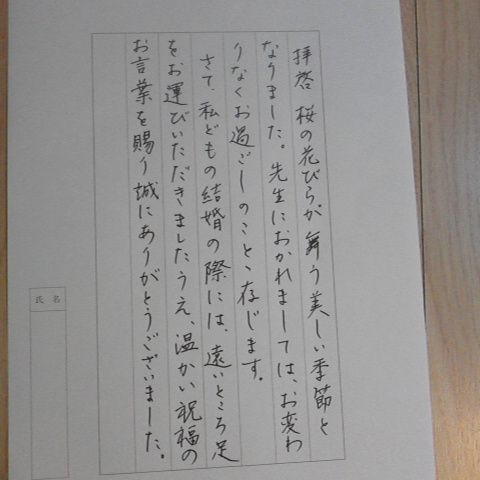 拝啓 桜の花びらが舞う美しい季節と
なりました。先生におかれましては、お変わ
りなくお過ごしのことと存じます。
さて、私どもの結婚の際には、遠いところ足
をお運びいただきましたうえ、温かい祝福の
お言葉を賜り誠にありがとうございました。
氏名